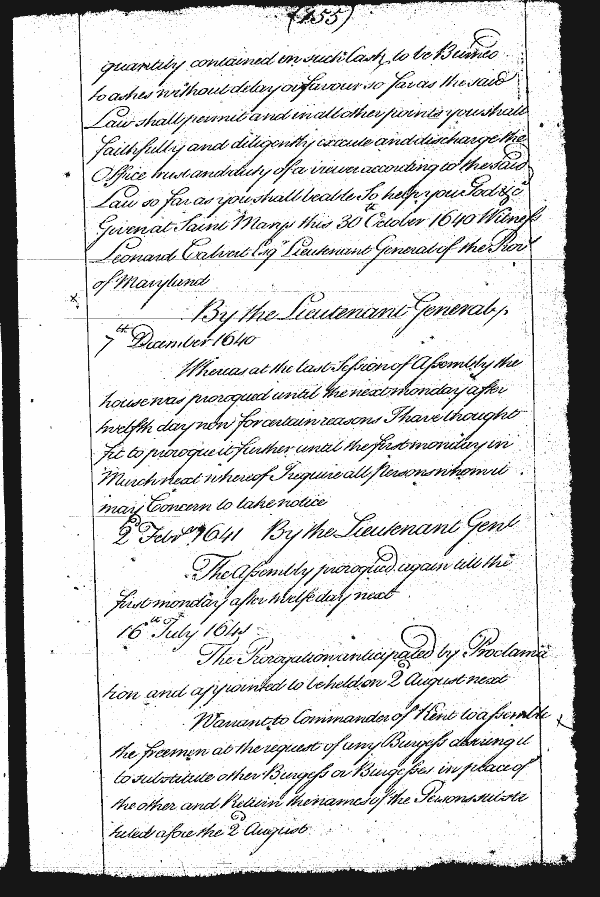 (155)
quantity contained in such Cask, to be Burned
to ashes without delay or favour so far as the said
Law shall permit and in all other points you shall
faithfully and diligently execute and discharge the
Office trust and duty of a viewer according to the said
Law so far as you shall be able So help you God &c
Given at Saint Marys this 30th October 1640 Witness
Leonard Calvert Esqr Lieutenant General of the Prov
of Maryland
By the Lieutenant General
7th December 1640
Whereas at the last Session of Assembly the
house was prorogued until the next monday after
twelfth day now for certain reasons I have thought
fit to prorogue it further until the first monday in
March next whereof I require all Persons whom it
may Concern to take notice
2d Febry 1641 By the Lieutenant Genl
The Assembly prorogued again till the
first monday after twelfe day next
16th July 1641
The Prorogation anticipated by Proclama
tion and appointed to be held on 2d August next
Warrant to Commander of Kent to assemble
the freemen at the request of any Burgess desiring it
to substitute other Burgess or Burgesses in place of
the other and Return the names of the Persons substi
tuted afore the 2d August